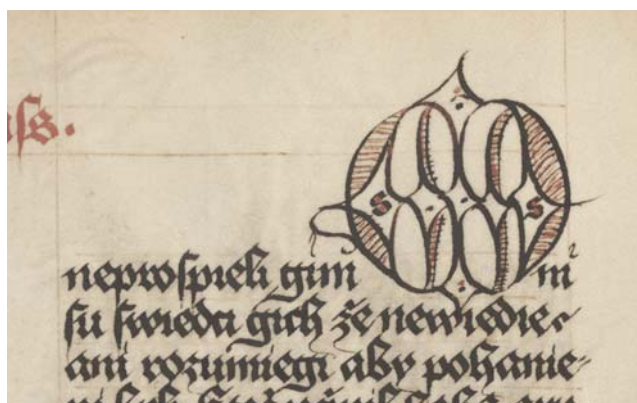 neproſpieli gim Oni
ſu ſwiedci gich že newiedie
ani rozumiegi aby pohanie-